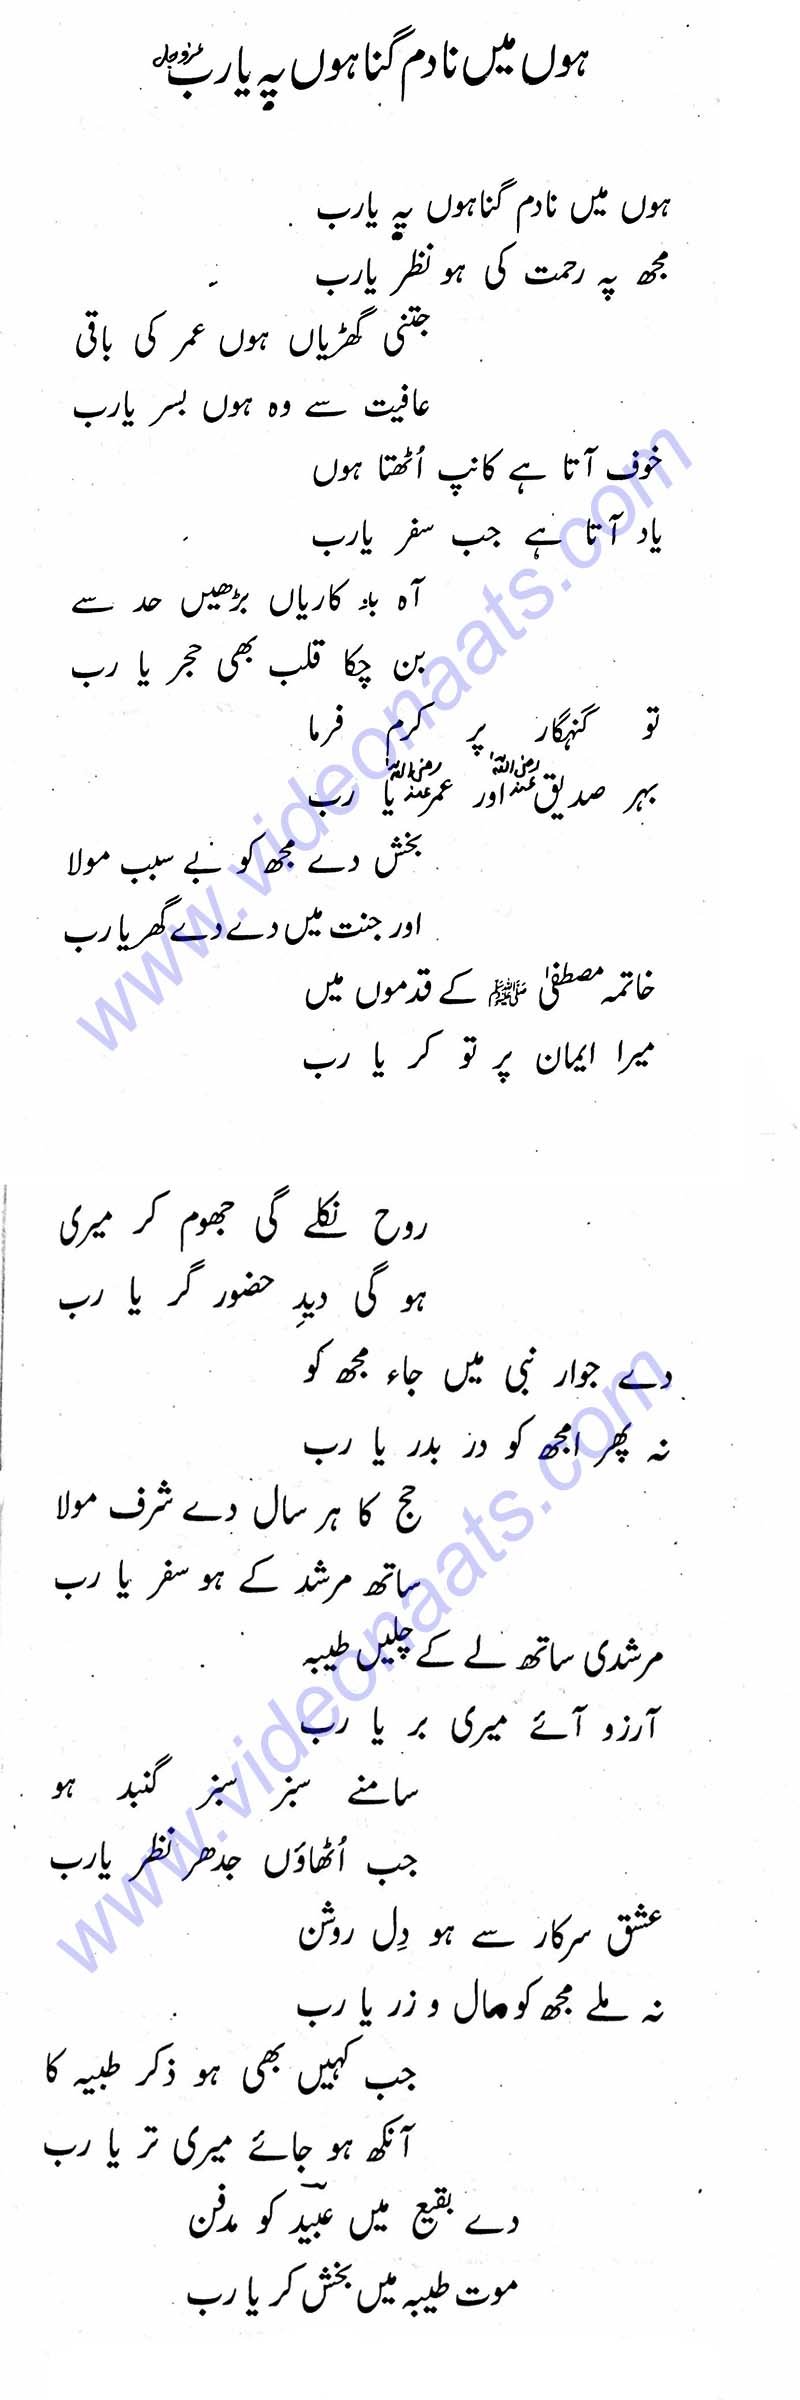 ہوں میں نادم گناہوں پہ یارب عزوجل
ہوں میں نادم گناہوں پہ یارب
مجھ پہ رحمت کی ہو نظر یارب
جتنی گھڑیاں ہوں عمر کی باقی
عافیت سے وہ ہوں بسر یارب
خوف آتا ہے کانپ اُٹھتا ہوں
یاد آتا ہے جب سفر یارب
آہ بد کاریاں بڑھیں حد سے
بن چکا قلب بھی حجر یا رب
تو گنہگار پر کرم فرما
بہر صدیق رضی اللہ عنہ اور عمر رضی اللہ عنہ یا رب
بخش دے مجھ کو بے سبب مولا
اور جنت میں دے دے گھر یا رب
خاتمہ مصطفیٰ ﷺ کے قدموں میں
میرا ایمان پر تو کر یا رب
روح نکلے گی جھوم کر میری
ہو گی دیدِ حضور گر یا رب
دے جوار نبی میں جاء مجھ کو
نہ پھر امجھ کو در بدر یا رب
حج کا ہر سال دے شرف مولا
ساتھ مرشد کے ہو سفر یا رب
مرشدی ساتھ لے کے چلیں طیبہ
آرزو آئے میری بر یا رب
سامنے سبز سبز گنبد ہو
جب اُٹھاؤں جدھر نظر یارب
عشق سرکار سے ہو دِل روشن
نہ ملے مجھ کو مال و زر یا رب
جب کہیں بھی ہو ذکر طیبہ کا
آنکھ ہو جائے میری تر یا رب
دے بقیع میں عبید کو مدفن
موت طیبہ میں بخش کر یا رب
www.videonaats.com
www.videonaats.com